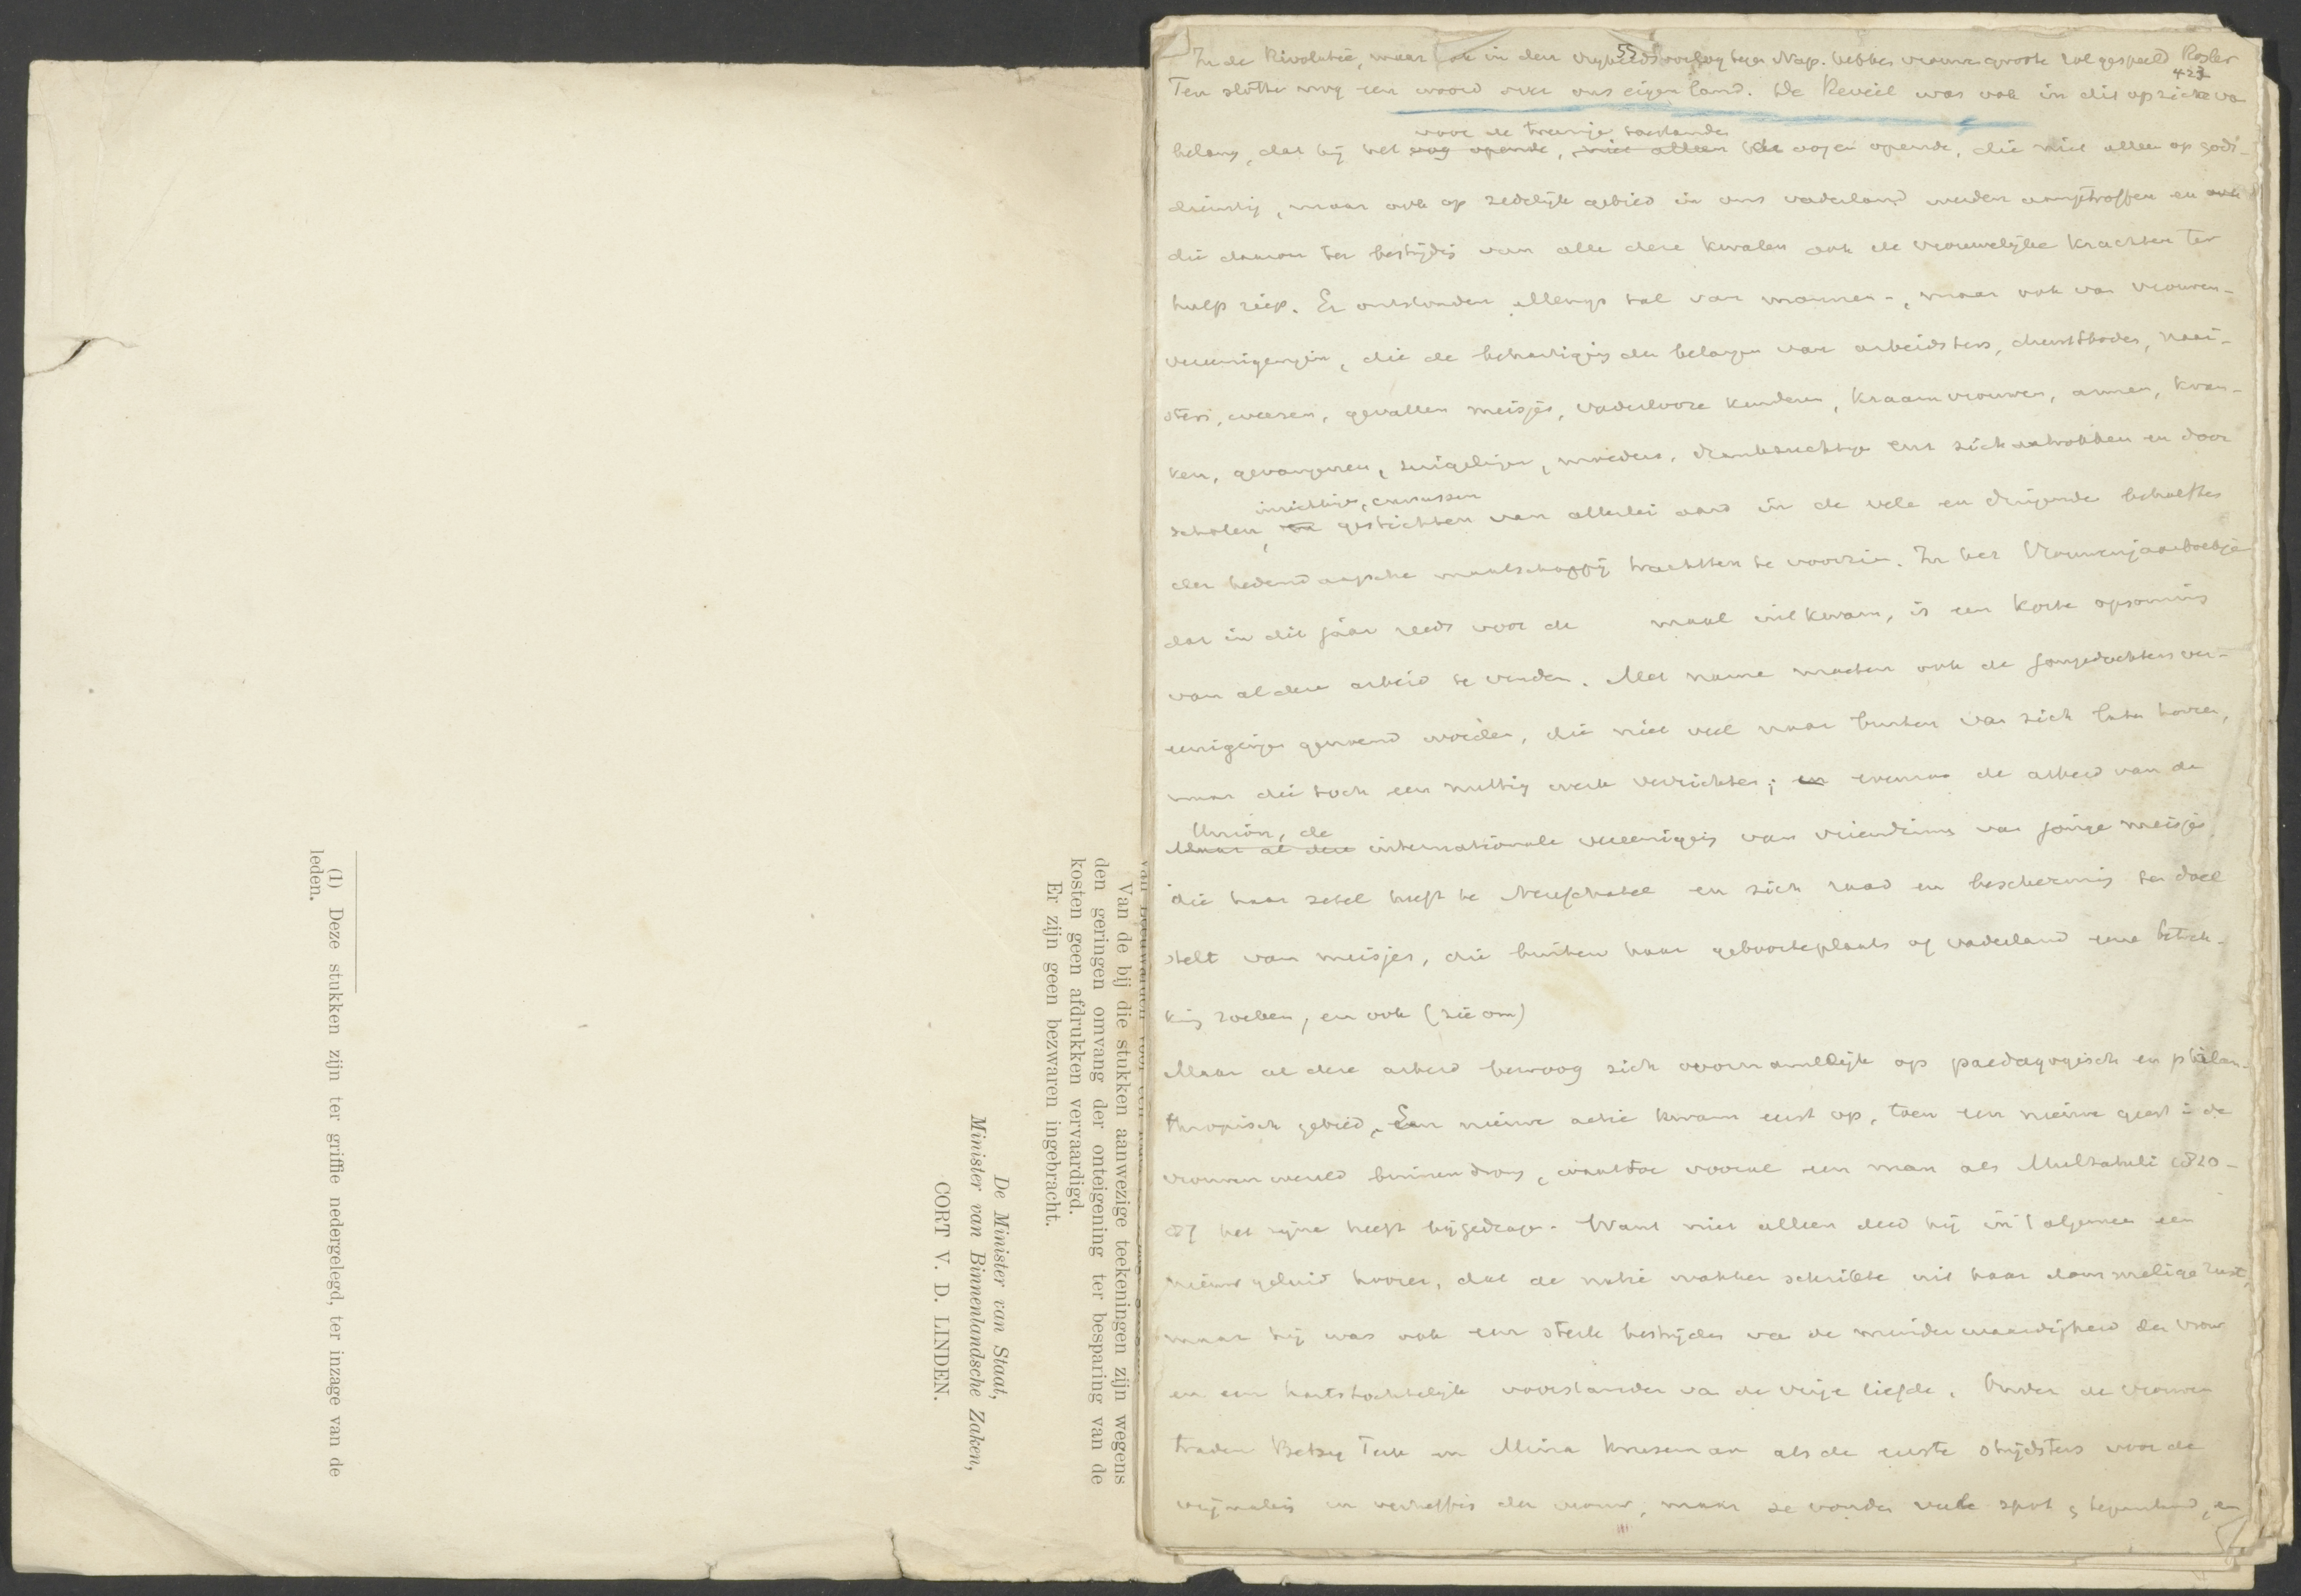 van Leeuwarden voor een
Van de bij die stukken aanwezige teekeningen zijn wegens
den geringen omvang der onteigening ter besparing van de
kosten geen afdrukken vervaardigd.
Er zijn geen bezwaren ingebracht.
De Minister van Staat,
Minister van Binnenlandsche Zaken,
CORT V. D. LINDEN.
(1) Deze stukken zijn ter griffie nedergelegd, ter inzage van de
leden.
55
In de Revolutie, maar ook in den vrijheidsoorlog tegen Nap. hebben vrouwen groote rol gespeeld Rosler
423
Ten slotte nog een woord over ons eigen land. De Reveil was ook in dit opzicht van
voor de treurige toestanden
belang, dat hij het oog opende, niet alleen de oogen opende, die niet alleen op gods-
dienstig, maar ook op zedelijk gebied in ons vaderland werden aangetroffen en ook
die daarom ter bestrijding van alle deze kwalen ook de vrouwelijke krachten ter
hulp riep. Er ontstonden allengs tal van mannen-, maar ook van vrouwen-
vereenigingen, die de behartiging der belangen van arbeidsters, dienstboden, naai-
sters, weezen, gevallen meisjes, vaderlooze kinderen, kraamvrouwen, armen, kran-
ken, gevangenen, zuigelingen, moeders, drankzuchtige enz zich aantrokken en door
inrichtingen, cursussen
scholen, en gestichten van allerlei aard in de vele en dringende behoeften
der hedendaagsche maatschappij trachtten te voorzien. In het Vrouwenjaarboekje
dat in dit jaar reeds voor de maal uitkwam, is een korte opsomming
van al deze arbeid te vinden. Met name moeten ook de jongedochtersver-
eenigingen genoemd worden, die niet veel naar buiten van zich laten hooren,
maar die toch een nuttig werk verrichten; en evenzoo de arbeid van de
Union, de
Maar al deze internationale vereeniging van vriendinnen van jonge meisjes
die haar zetel heeft te Neufchatel en zich raad en bescherming ten doel
stelt van meisjes, die buiten haar geboorteplaats of vaderland eene betrek-
king zoeken, en ook (zie om)
Maar al deze arbeid bewoog zich voornamelijk op paedagogisch en philan-
thropisch gebied. Een nieuwe actie kwam eerst op, toen een nieuwe geest in de
vrouwenwereld binnendrong, waartoe vooral een man als Multatuli 1820-
87 het zijne heeft bijgedragen. Want niet alleen deed hij in 't algemeen een
nieuw geluid hooren, dat de natie wakker schrikte uit haar dommelige rust,
maar hij was ook een sterk bestrijder van de minderwaardigheid der vrouw
en een hartstochtelijk voorstander van de vrije liefde. Onder de vrouwen
traden Betsy Perk en Mina Kruseman als de eerste strijdsters voor de
vrijmaking en verheffing der vrouw, maar ze vonden veel spot & tegenstand, en